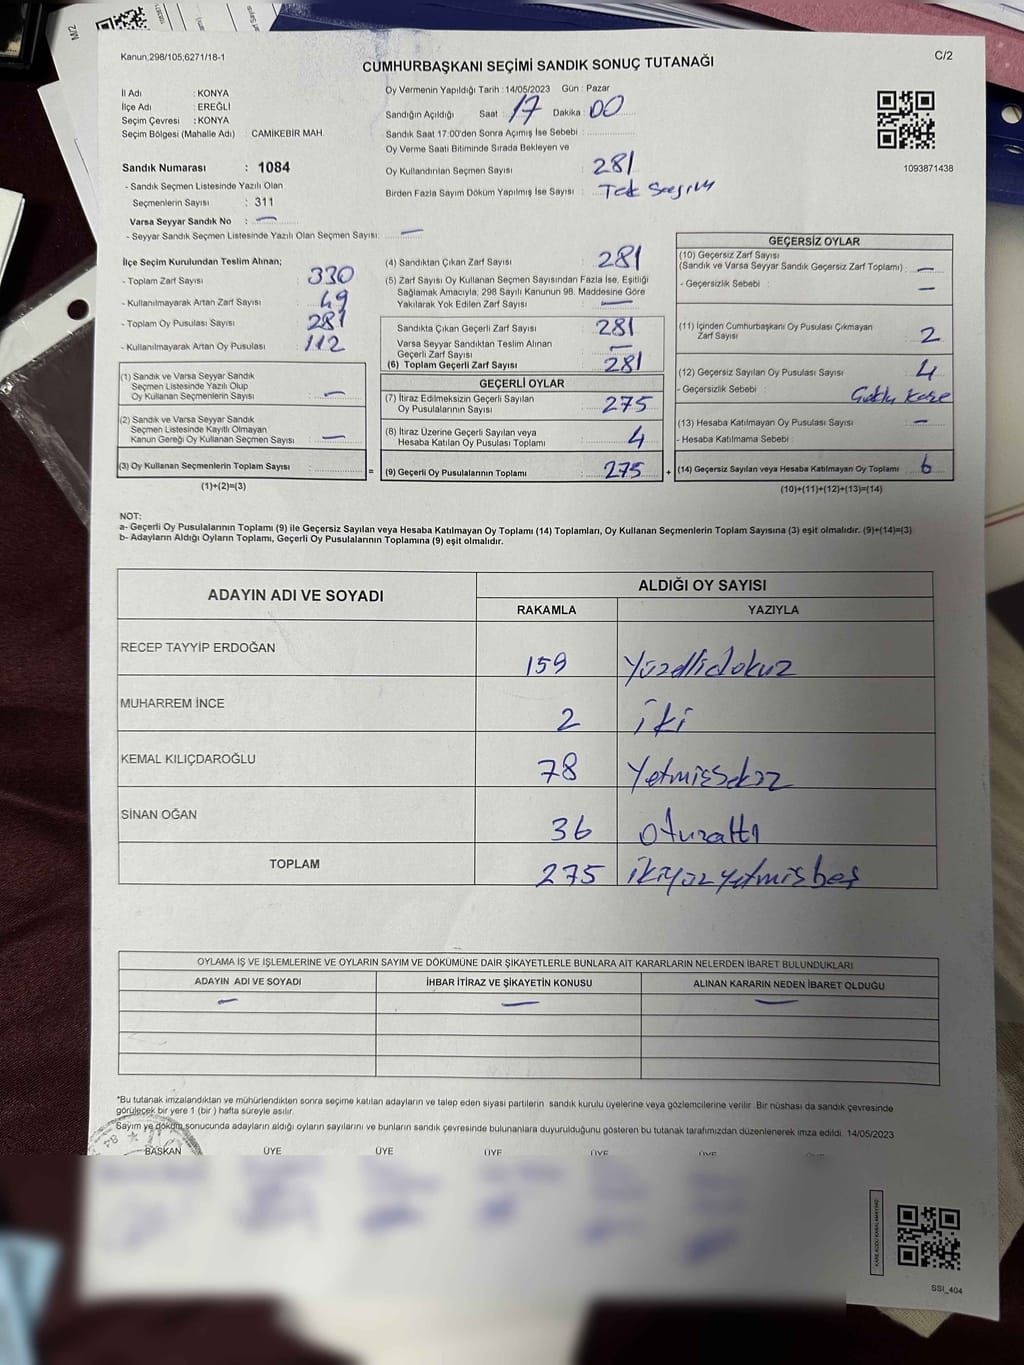 Kanun,298/105;6271/18-1
C/2
CUMHURBAŞKANI SEÇİMİ SANDIK SONUÇ TUTANAĞI
İl Adı : KONYA
İlçe Adı : EREĞLİ
Seçim Çevresi : KONYA
Seçim Bölgesi (Mahalle Adı) : CAMİKEBİR MAH.
Oy Vermenin Yapıldığı Tarih : 14/05/2023 Gün : Pazar
Sandığın Açıldığı Saat : 17 Dakika : 00
Sandık Saat 17:00'den Sonra Açılmış İse Sebebi :
Oy Verme Saati Bitiminde Sırada Bekleyen ve
Oy Kullandırılan Seçmen Sayısı : 281
Birden Fazla Sayım Döküm Yapılmış İse Sayısı : Tek Sayım
1093871438
Sandık Numarası : 1084
- Sandık Seçmen Listesinde Yazılı Olan
Seçmenlerin Sayısı : 311
Varsa Seyyar Sandık No : —
- Seyyar Sandık Seçmen Listesinde Yazılı Olan Seçmen Sayısı: —
İlçe Seçim Kurulundan Teslim Alınan;
- Toplam Zarf Sayısı 330
- Kullanılmayarak Artan Zarf Sayısı : 49
- Toplam Oy Pusulası Sayısı : 281
- Kullanılmayarak Artan Oy Pusulası : 112
(1) Sandık ve Varsa Seyyar Sandık
Seçmen Listesinde Yazılı Olup
Oy Kullanan Seçmenlerin Sayısı : —
(2) Sandık ve Varsa Seyyar Sandık
Seçmen Listesinde Kayıtlı Olmayan
Kanun Gereği Oy Kullanan Seçmen Sayısı : —
(3) Oy Kullanan Seçmenlerin Toplam Sayısı : =
(1)+(2)=(3)
(4) Sandıktan Çıkan Zarf Sayısı : 281
(5) Zarf Sayısı Oy Kullanan Seçmen Sayısından Fazla İse, Eşitliği
Sağlamak Amacıyla, 298 Sayılı Kanunun 98. Maddesine Göre
Yakılarak Yok Edilen Zarf Sayısı : —
Sandıkta Çıkan Geçerli Zarf Sayısı : 281
Varsa Seyyar Sandıktan Teslim Alınan
Geçerli Zarf Sayısı : —
(6) Toplam Geçerli Zarf Sayısı : 281
GEÇERLİ OYLAR
(7) İtiraz Edilmeksizin Geçerli Sayılan
Oy Pusulalarının Sayısı : 275
(8) İtiraz Üzerine Geçerli Sayılan veya
Hesaba Katılan Oy Pusulası Toplamı : 4
(9) Geçerli Oy Pusulalarının Toplamı : 275 +
GEÇERSİZ OYLAR
(10) Geçersiz Zarf Sayısı
(Sandık ve Varsa Seyyar Sandık Geçersiz Zarf Toplamı) : —
- Geçersizlik Sebebi : —
(11) İçinden Cumhurbaşkanı Oy Pusulası Çıkmayan
Zarf Sayısı : 2
(12) Geçersiz Sayılan Oy Pusulası Sayısı : 4
- Geçersizlik Sebebi :
(13) Hesaba Katılmayan Oy Pusulası Sayısı : —
- Hesaba Katılmama Sebebi :
(14) Geçersiz Sayılan veya Hesaba Katılmayan Oy Toplamı : 6
(10)+(11)+(12)+(13)=(14)
NOT:
a- Geçerli Oy Pusulalarının Toplamı (9) ile Geçersiz Sayılan veya Hesaba Katılmayan Oy Toplamı (14) Toplamları, Oy Kullanan Seçmenlerin Toplam Sayısına (3) eşit olmalıdır. (9)+(14)=(3)
b- Adayların Aldığı Oyların Toplamı, Geçerli Oy Pusulalarının Toplamına (9) eşit olmalıdır.
ADAYIN ADI VE SOYADI
ALDIĞI OY SAYISI
RAKAMLA YAZIYLA
RECEP TAYYİP ERDOĞAN 159 Yüzellidokuz
MUHARREM İNCE 2 iki
KEMAL KILIÇDAROĞLU 78 Yetmişsekiz
SİNAN OĞAN 36 otuzaltı
TOPLAM 275 ikiyüzyetmişbeş
OYLAMA İŞ VE İŞLEMLERİNE VE OYLARIN SAYIM VE DÖKÜMÜNE DAİR ŞİKAYETLERLE BUNLARA AİT KARARLARIN NELERDEN İBARET BULUNDUKLARI
ADAYIN ADI VE SOYADI İHBAR İTİRAZ VE ŞİKAYETİN KONUSU ALINAN KARARIN NEDEN İBARET OLDUĞU
— — —
*Bu tutanak imzalandıktan ve mühürlendikten sonra seçime katılan adayların ve talep eden siyasi partilerin sandık kurulu üyelerine veya gözlemcilerine verilir. Bir nüshası da sandık çevresinde
görülecek bir yere 1 (bir) hafta süreyle asılır.
Sayım ve döküm sonucunda adayların aldığı oyların sayılarını ve bunların sandık çevresinde bulunanlara duyurulduğunu gösteren bu tutanak tarafımızdan düzenlenerek imza edildi. 14/05/2023
BAŞKAN ÜYE ÜYE ÜYE ÜYE ÜYE
SSI_404